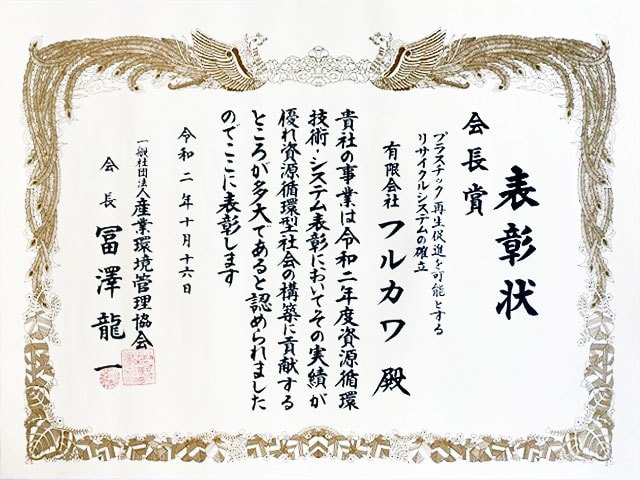 表彰状
会長賞
プラスチック再生促進を可能とする
リサイクルシステムの確立
有限会社 フルカワ 殿
貴社の事業は令和二年度資源循環
技術・システム表彰においてその実績が
優れ資源循環型社会の構築に貢献する
ところが多大であると認められました
のでここに表彰します
令和二年十月十六日
一般社団法人産業環境管理協会
会長 冨澤龍一